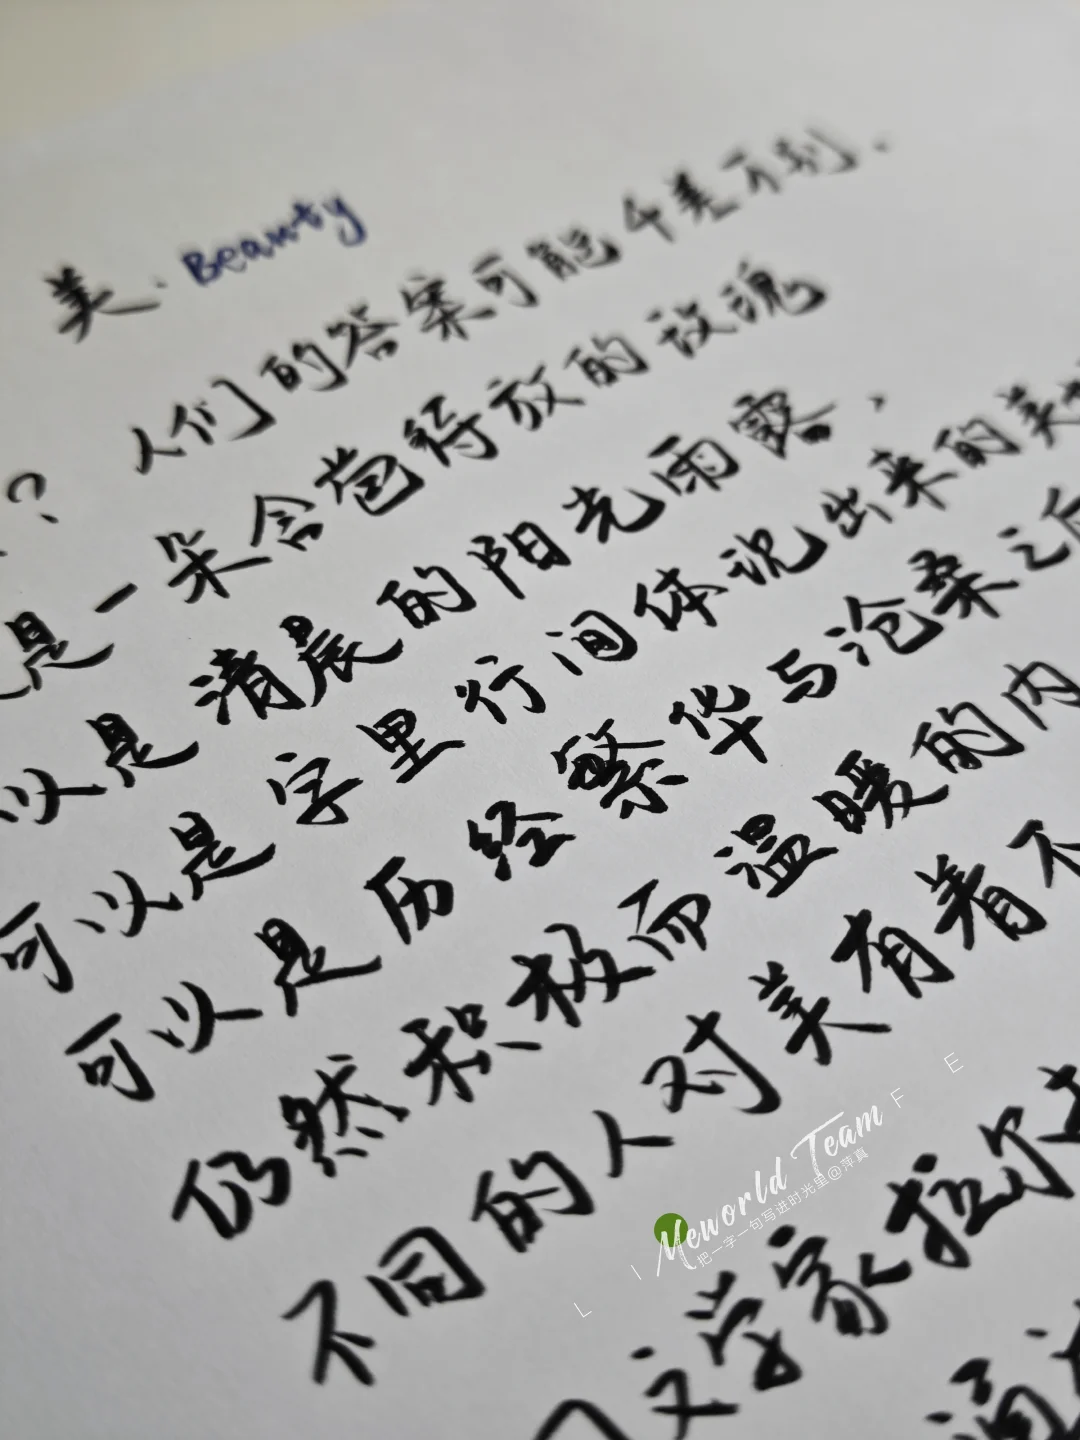 美. Beauty
? 人们的答案可能千差万别.
是一朵含苞待放的玫瑰
以是清晨的阳光雨露,
可以是字里行间体说出来的美
可以是历经繁华与沧桑之后
仍然积极而温暖的内
不同的人对美有着不
文学家拉尔
Meworld Team
把一字一句写进时光里@萍真
LIFE